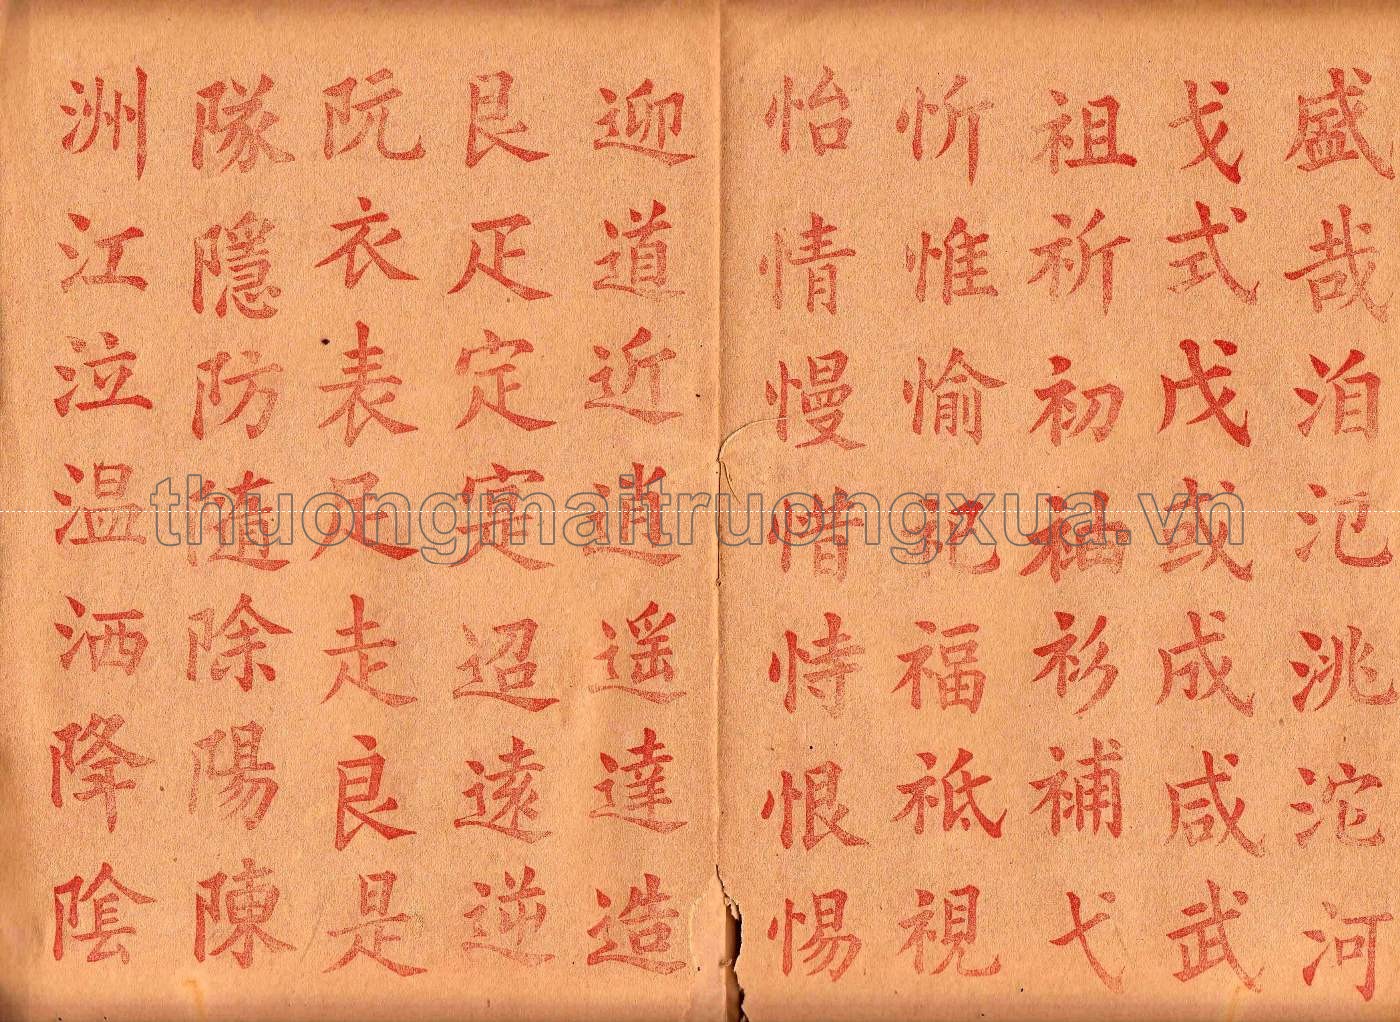 盛哉洎氾洮沱河
戈式戊或成咸武
祖祈初袖衫補弋
忻惟愉祀福祗視
怡情慢惜恃恨惕
迎道近逍遥達造
艮疋定寔迢遠逆
阮衣表足走良是
隊隱防随除陽陳
洲江泣温洒降陰
thuongmaitruongxua.vn